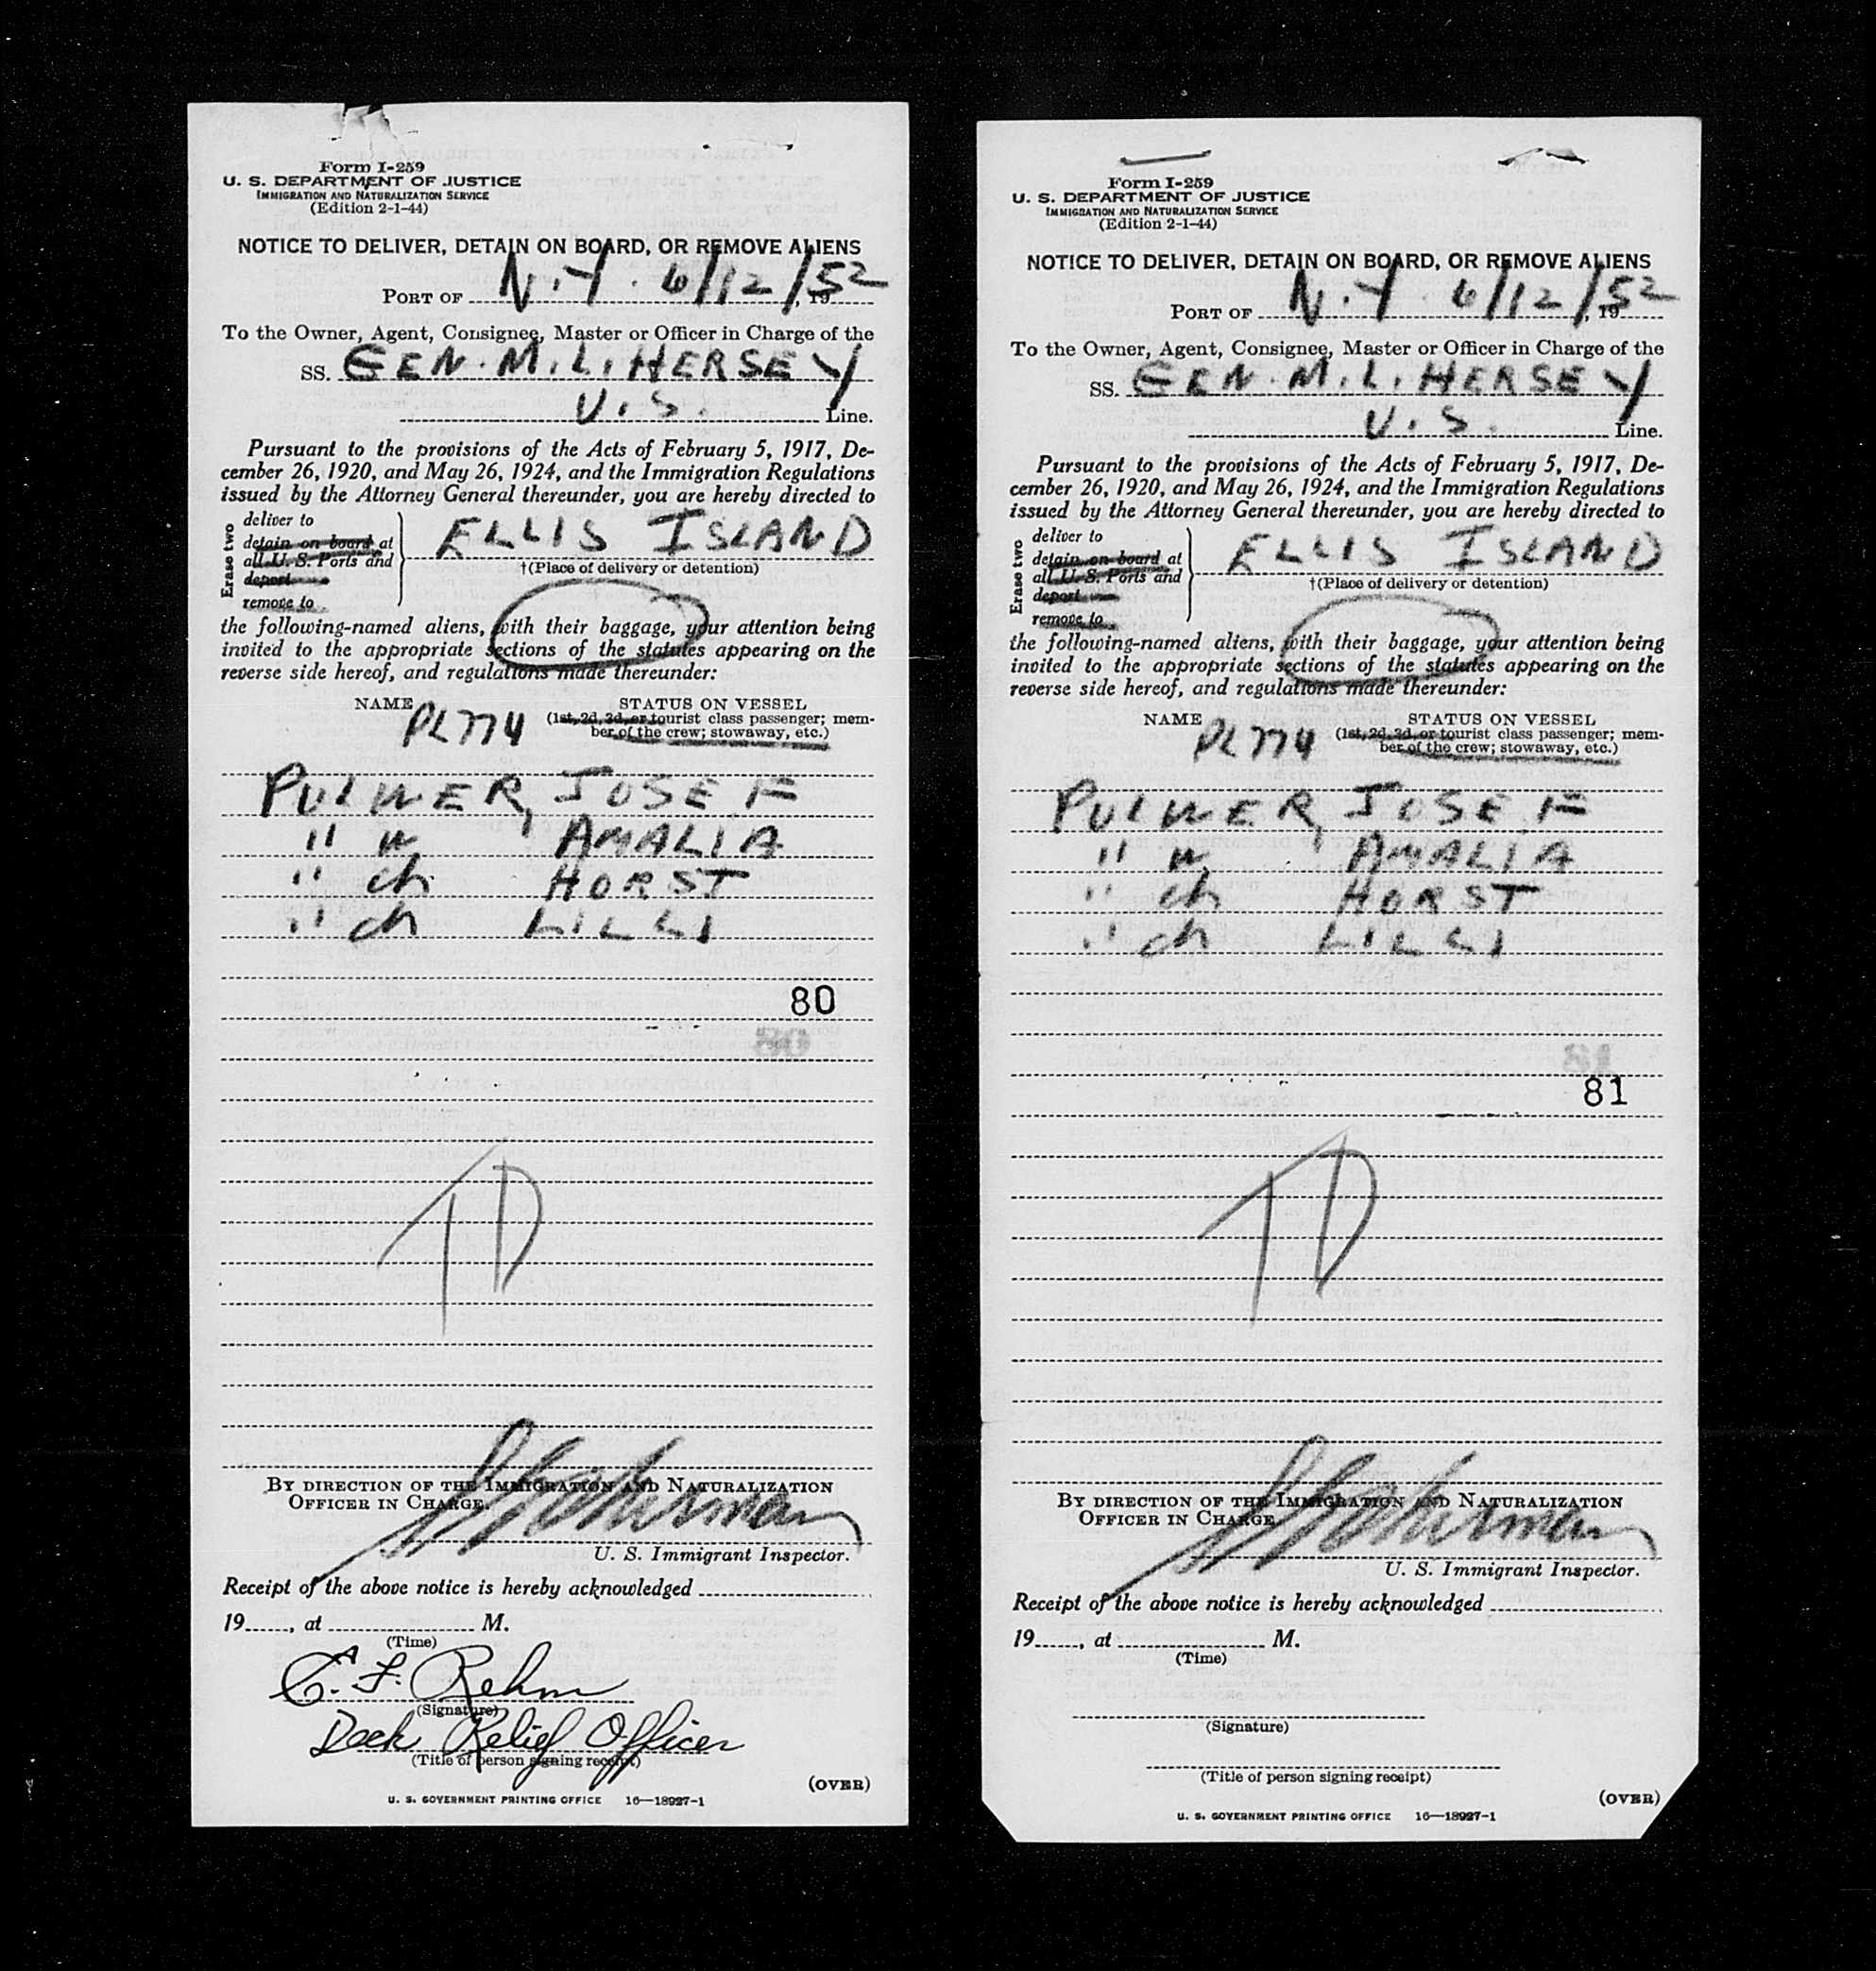 Form I-259
U. S. DEPARTMENT OF JUSTICE
IMMIGRATION AND NATURALIZATION SERVICE
(Edition 2-1-44)
NOTICE TO DELIVER, DETAIN ON BOARD, OR REMOVE ALIENS
PORT OF N.Y. 6/12/52, 19
To the Owner, Agent, Consignee, Master or Officer in Charge of the
SS. GEN. M. L. HERSEY
U. S. Line.
Pursuant to the provisions of the Acts of February 5, 1917, De-
cember 26, 1920, and May 26, 1924, and the Immigration Regulations
issued by the Attorney General thereunder, you are hereby directed to
Erase two
deliver to
detain on board at
all U. S. Ports and
deport
remove to
ELLIS ISLAND
†(Place of delivery or detention)
the following-named aliens, with their baggage, your attention being
invited to the appropriate sections of the statutes appearing on the
reverse side hereof, and regulations made thereunder:
NAME PL 774 STATUS ON VESSEL
(1st, 2d, 3d, or tourist class passenger; mem-
ber of the crew; stowaway, etc.)
PULWER, JOSEF
" w AMALIA
" ch HORST
" ch LILLI
80
80
TD
BY DIRECTION OF THE IMMIGRATION AND NATURALIZATION
OFFICER IN CHARGE.
U. S. Immigrant Inspector.
Receipt of the above notice is hereby acknowledged
19......, at M.
(Time)
C. F. Rehm
(Signature)
Deck Relief Officer
(Title of person signing receipt)
(OVER)
U. S. GOVERNMENT PRINTING OFFICE 16—18927-1
Form I-259
U. S. DEPARTMENT OF JUSTICE
IMMIGRATION AND NATURALIZATION SERVICE
(Edition 2-1-44)
NOTICE TO DELIVER, DETAIN ON BOARD, OR REMOVE ALIENS
PORT OF N.Y 6/12/52, 19
To the Owner, Agent, Consignee, Master or Officer in Charge of the
SS. GEN. M. L. HERSEY
U. S. Line.
Pursuant to the provisions of the Acts of February 5, 1917, De-
cember 26, 1920, and May 26, 1924, and the Immigration Regulations
issued by the Attorney General thereunder, you are hereby directed to
Erase two
deliver to
detain on board at
all U. S. Ports and
deport
remove to
ELLIS ISLAND
†(Place of delivery or detention)
the following-named aliens, with their baggage, your attention being
invited to the appropriate sections of the statutes appearing on the
reverse side hereof, and regulations made thereunder:
NAME PL 774 STATUS ON VESSEL
(1st, 2d, 3d, or tourist class passenger; mem-
ber of the crew; stowaway, etc.)
PULWER, JOSEF
" w AMALIA
" ch HORST
" ch LILLI
81
81
TD
BY DIRECTION OF THE IMMIGRATION AND NATURALIZATION
OFFICER IN CHARGE.
U. S. Immigrant Inspector.
Receipt of the above notice is hereby acknowledged
19......, at M.
(Time)
(Signature)
(Title of person signing receipt)
(OVER)
U. S. GOVERNMENT PRINTING OFFICE 16—18927-1